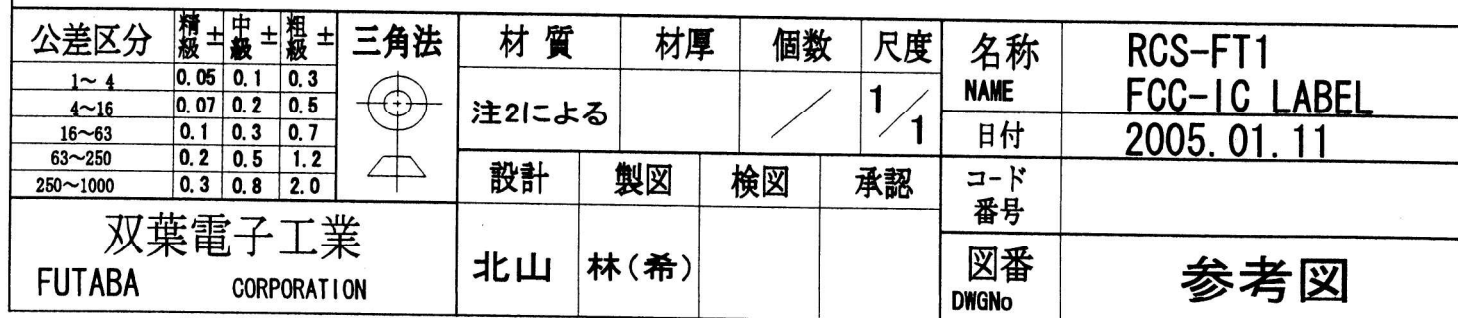 公差区分 精級± 中級± 粗級± 三角法
1～4 0.05 0.1 0.3
4～16 0.07 0.2 0.5
16～63 0.1 0.3 0.7
63～250 0.2 0.5 1.2
250～1000 0.3 0.8 2.0
双葉電子工業
FUTABA CORPORATION
材質 材厚 個数 尺度
注2による ／ 1/1
設計 製図 検図 承認
北山 林(希)
名称 RCS-FT1
NAME FCC-IC LABEL
日付 2005.01.11
コード
番号
図番 参考図
DWGNo